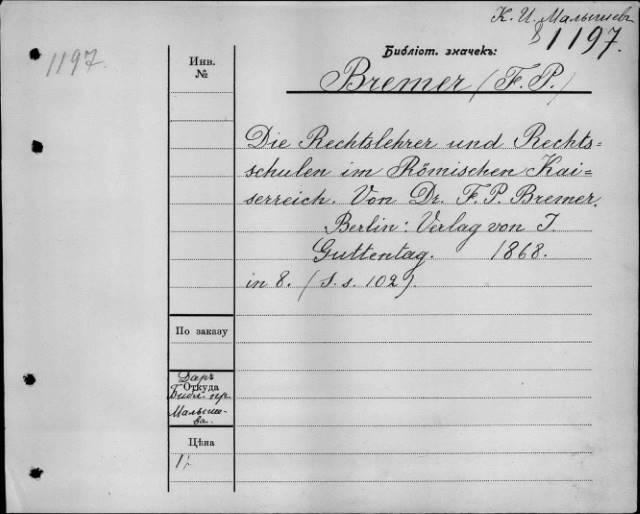 К. И. Малышевъ
1197.
1197.
Библіот. значекъ:
Инв.
№
Bremer (F. P.)
Die Rechtslehrer und Rechts=
schulen im Römischen Kai=
serreich. Von Dr. F. P. Bremer.
Berlin: Verlag von J.
Guttentag. 1868.
in 8. (S. s. 102).
По заказу
Даръ
Откуда
Библ. пр.
Малыше-
ва.
Цѣна